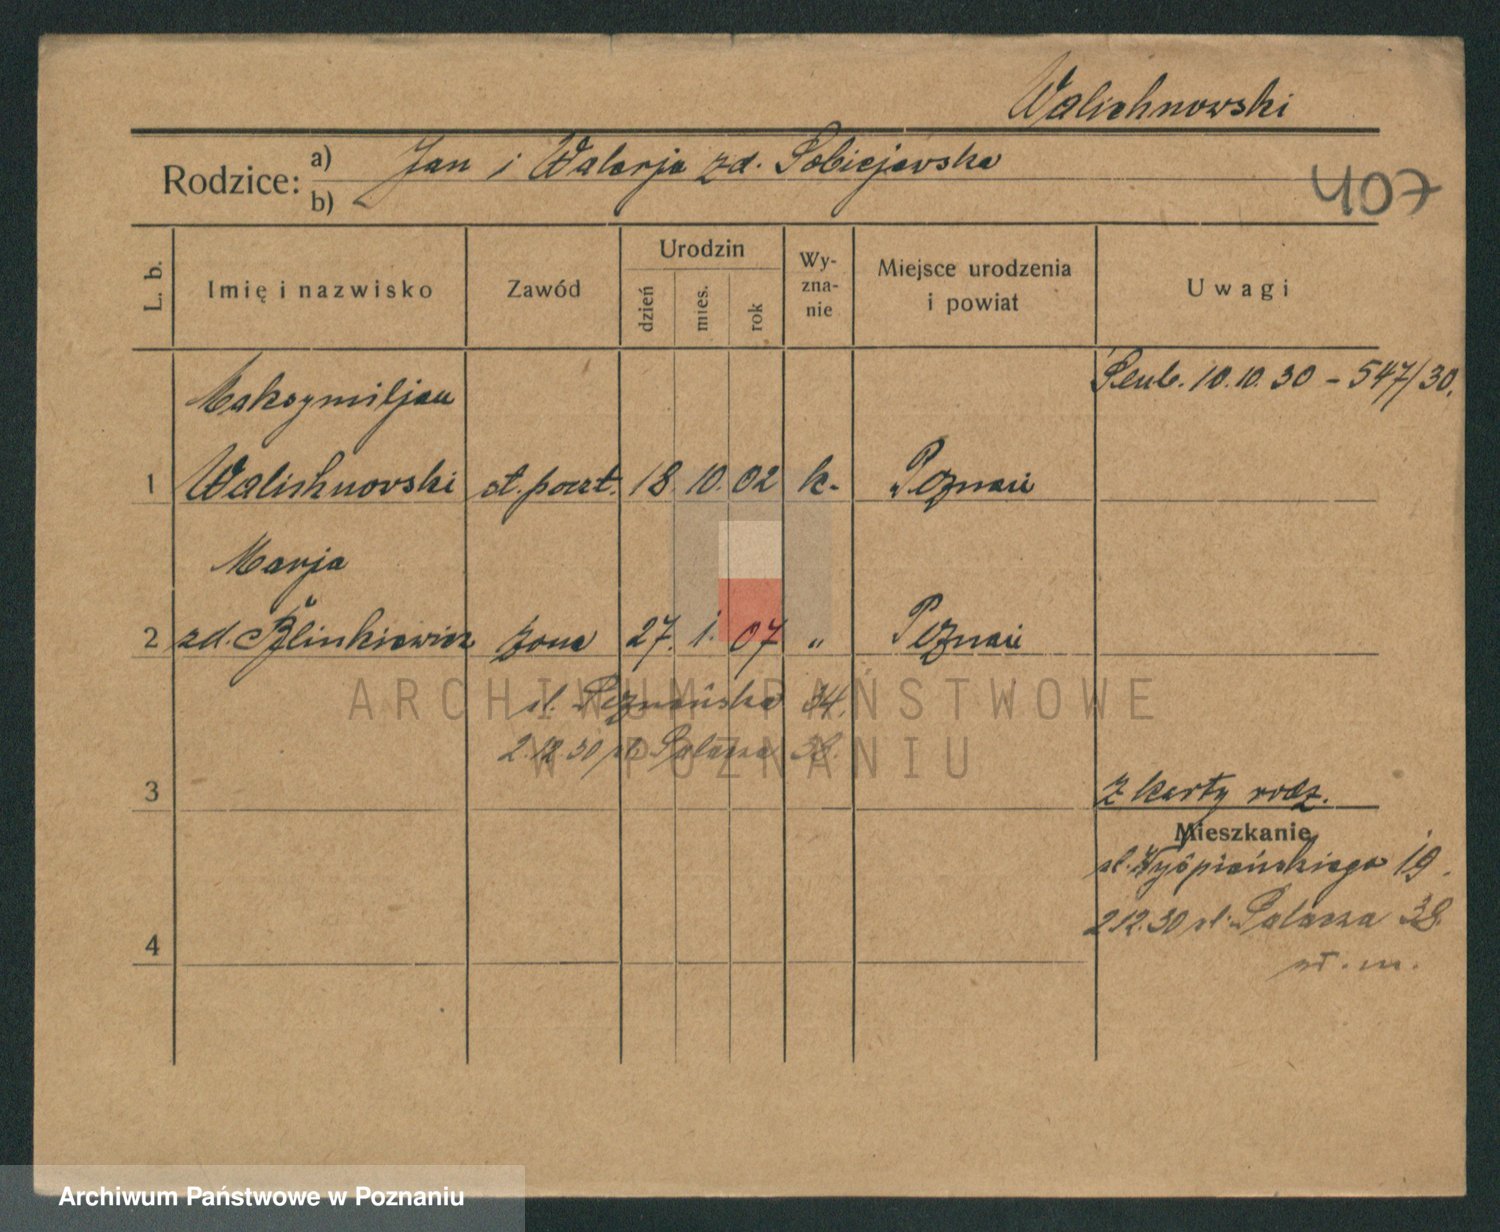 Walichnowski
Rodzice: a) Jan i Walerja zd. Sobiejewska
b)
407
L. b.
Imię i nazwisko
Zawód
Urodzin
dzień
mies.
rok
Wy-
zna-
nie
Miejsce urodzenia
i powiat
Uwagi
Maksymiljan
1 Walichnowski st. poczt. 18. 10. 02 k. Poznań
10.10.30 – 547/30.
Marja
2 zd. żona 27. 1. 07 " Poznań
ul. Poznańska 34.
2.12.30 ul. Palacza 38.
3
z karty rodz.
Mieszkanie
ul. Wyspiańskiego 19.
2.12.30 ul. Palacza 38.
4
ARCHIWUM PAŃSTWOWE
W POZNANIU
Archiwum Państwowe w Poznaniu